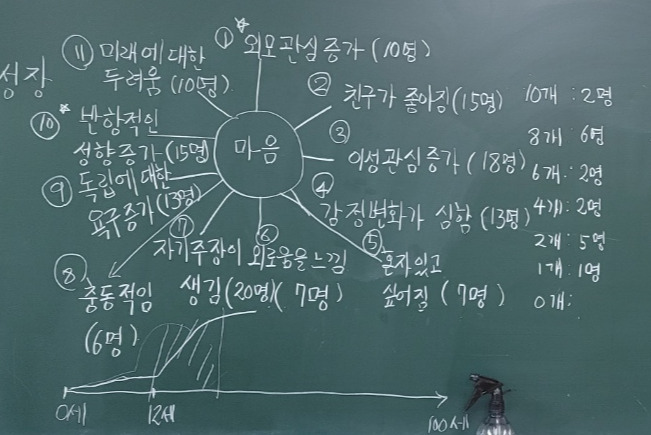 성장
* ① 외모관심증가 (10명)
② 친구가 좋아짐 (15명)
③ 이성관심증가 (18명)
④ 감정변화가 심함 (13명)
⑤ 혼자있고
싶어짐 (7명)
⑥ 외로움을느낌
(7명)
⑦ 자기주장이
생김 (20명)
⑧ 충동적임
(6명)
⑨ 독립에 대한
욕구증가 (13명)
* ⑩ 반항적인
성향증가 (15명)
⑪ 미래에 대한
두려움 (10명)
마음
10개 : 2명
8개 : 6명
6개 : 2명
4개 : 2명
2개 : 5명
1개 : 1명
0개 :
0세 12세 100세